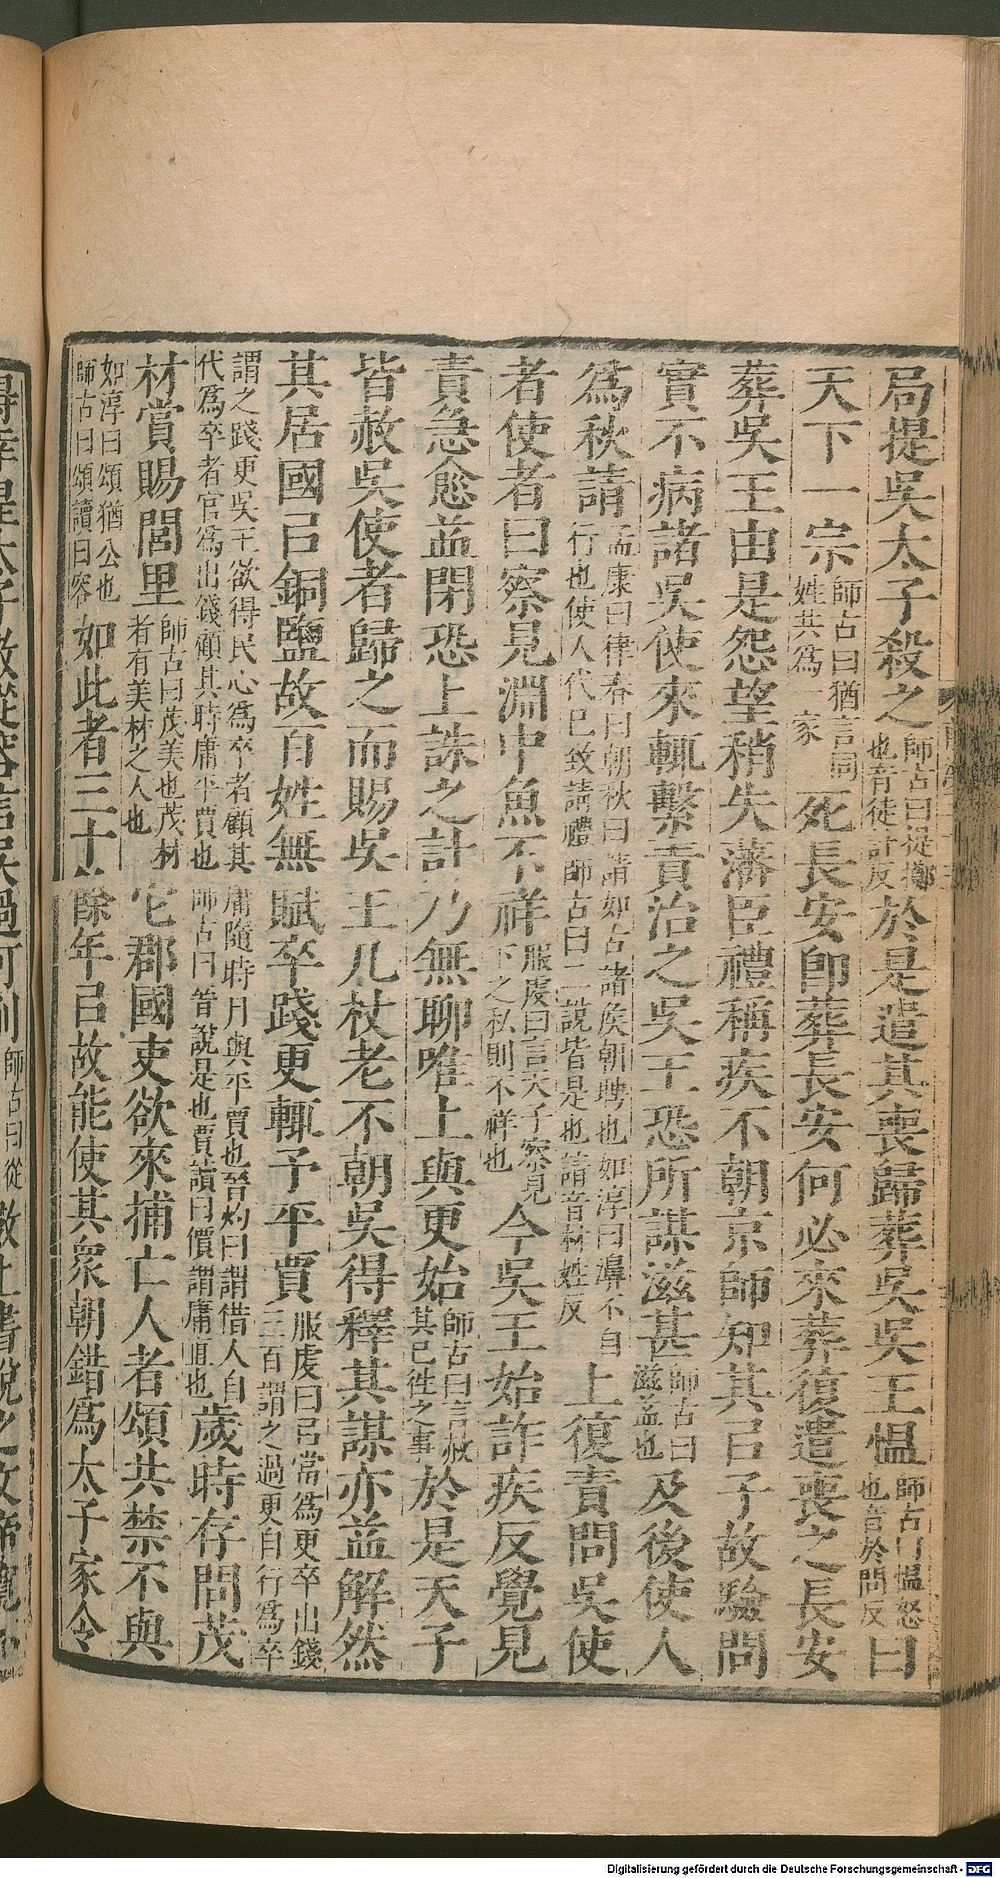 局提吳太子殺之師古曰提擲也音徒計反於是遣其喪歸葬吳吳王慍師古曰慍怒也音於問反曰
天下一宗師古曰猶言同姓共爲一家死長安卽葬長安何必來葬復遣喪之長安
葬吳王由是怨望稍失藩臣禮稱疾不朝京師知其㠯子故驗問
實不病諸吳使來輒繫責治之吳王恐所謀滋甚師古曰滋益也及後使人
爲秋請孟康曰律春曰朝秋曰請如古諸侯朝聘也如淳曰濞不自行也使人代己致請禮師古曰二說皆是也請音材姓反上復責問吳使
者使者曰察見淵中魚不祥服虔曰言天子察見下之私則不祥也今吳王始詐疾反覺見
責急愈益閉恐上誅之計乃無聊唯上與更始師古曰言赦其已往之事於是天子
皆赦吳使者歸之而賜吳王几杖老不朝吳得釋其謀亦益解然
其居國㠯銅鹽故百姓無賦卒踐更輒予平賈服虔曰㠯當爲更卒出錢三百謂之過更自行爲卒
謂之踐更吳王欲得民心爲卒者顧其庸隨時月與平賈也晉灼曰謂借人自代爲卒者官爲出錢顧其時庸平賈也師古曰晉說是也賈讀曰價謂庸直也歲時存問茂
材賞賜閭里師古曰茂美也茂材者有美材之人也它郡國吏欲來捕亡人者頌共禁不與
如淳曰頌猶公也師古曰頌讀曰容如此者三十餘年㠯故能使其衆朝錯爲太子家令
師古曰從
Digitalisierung gefördert durch die Deutsche Forschungsgemeinschaft - DFG